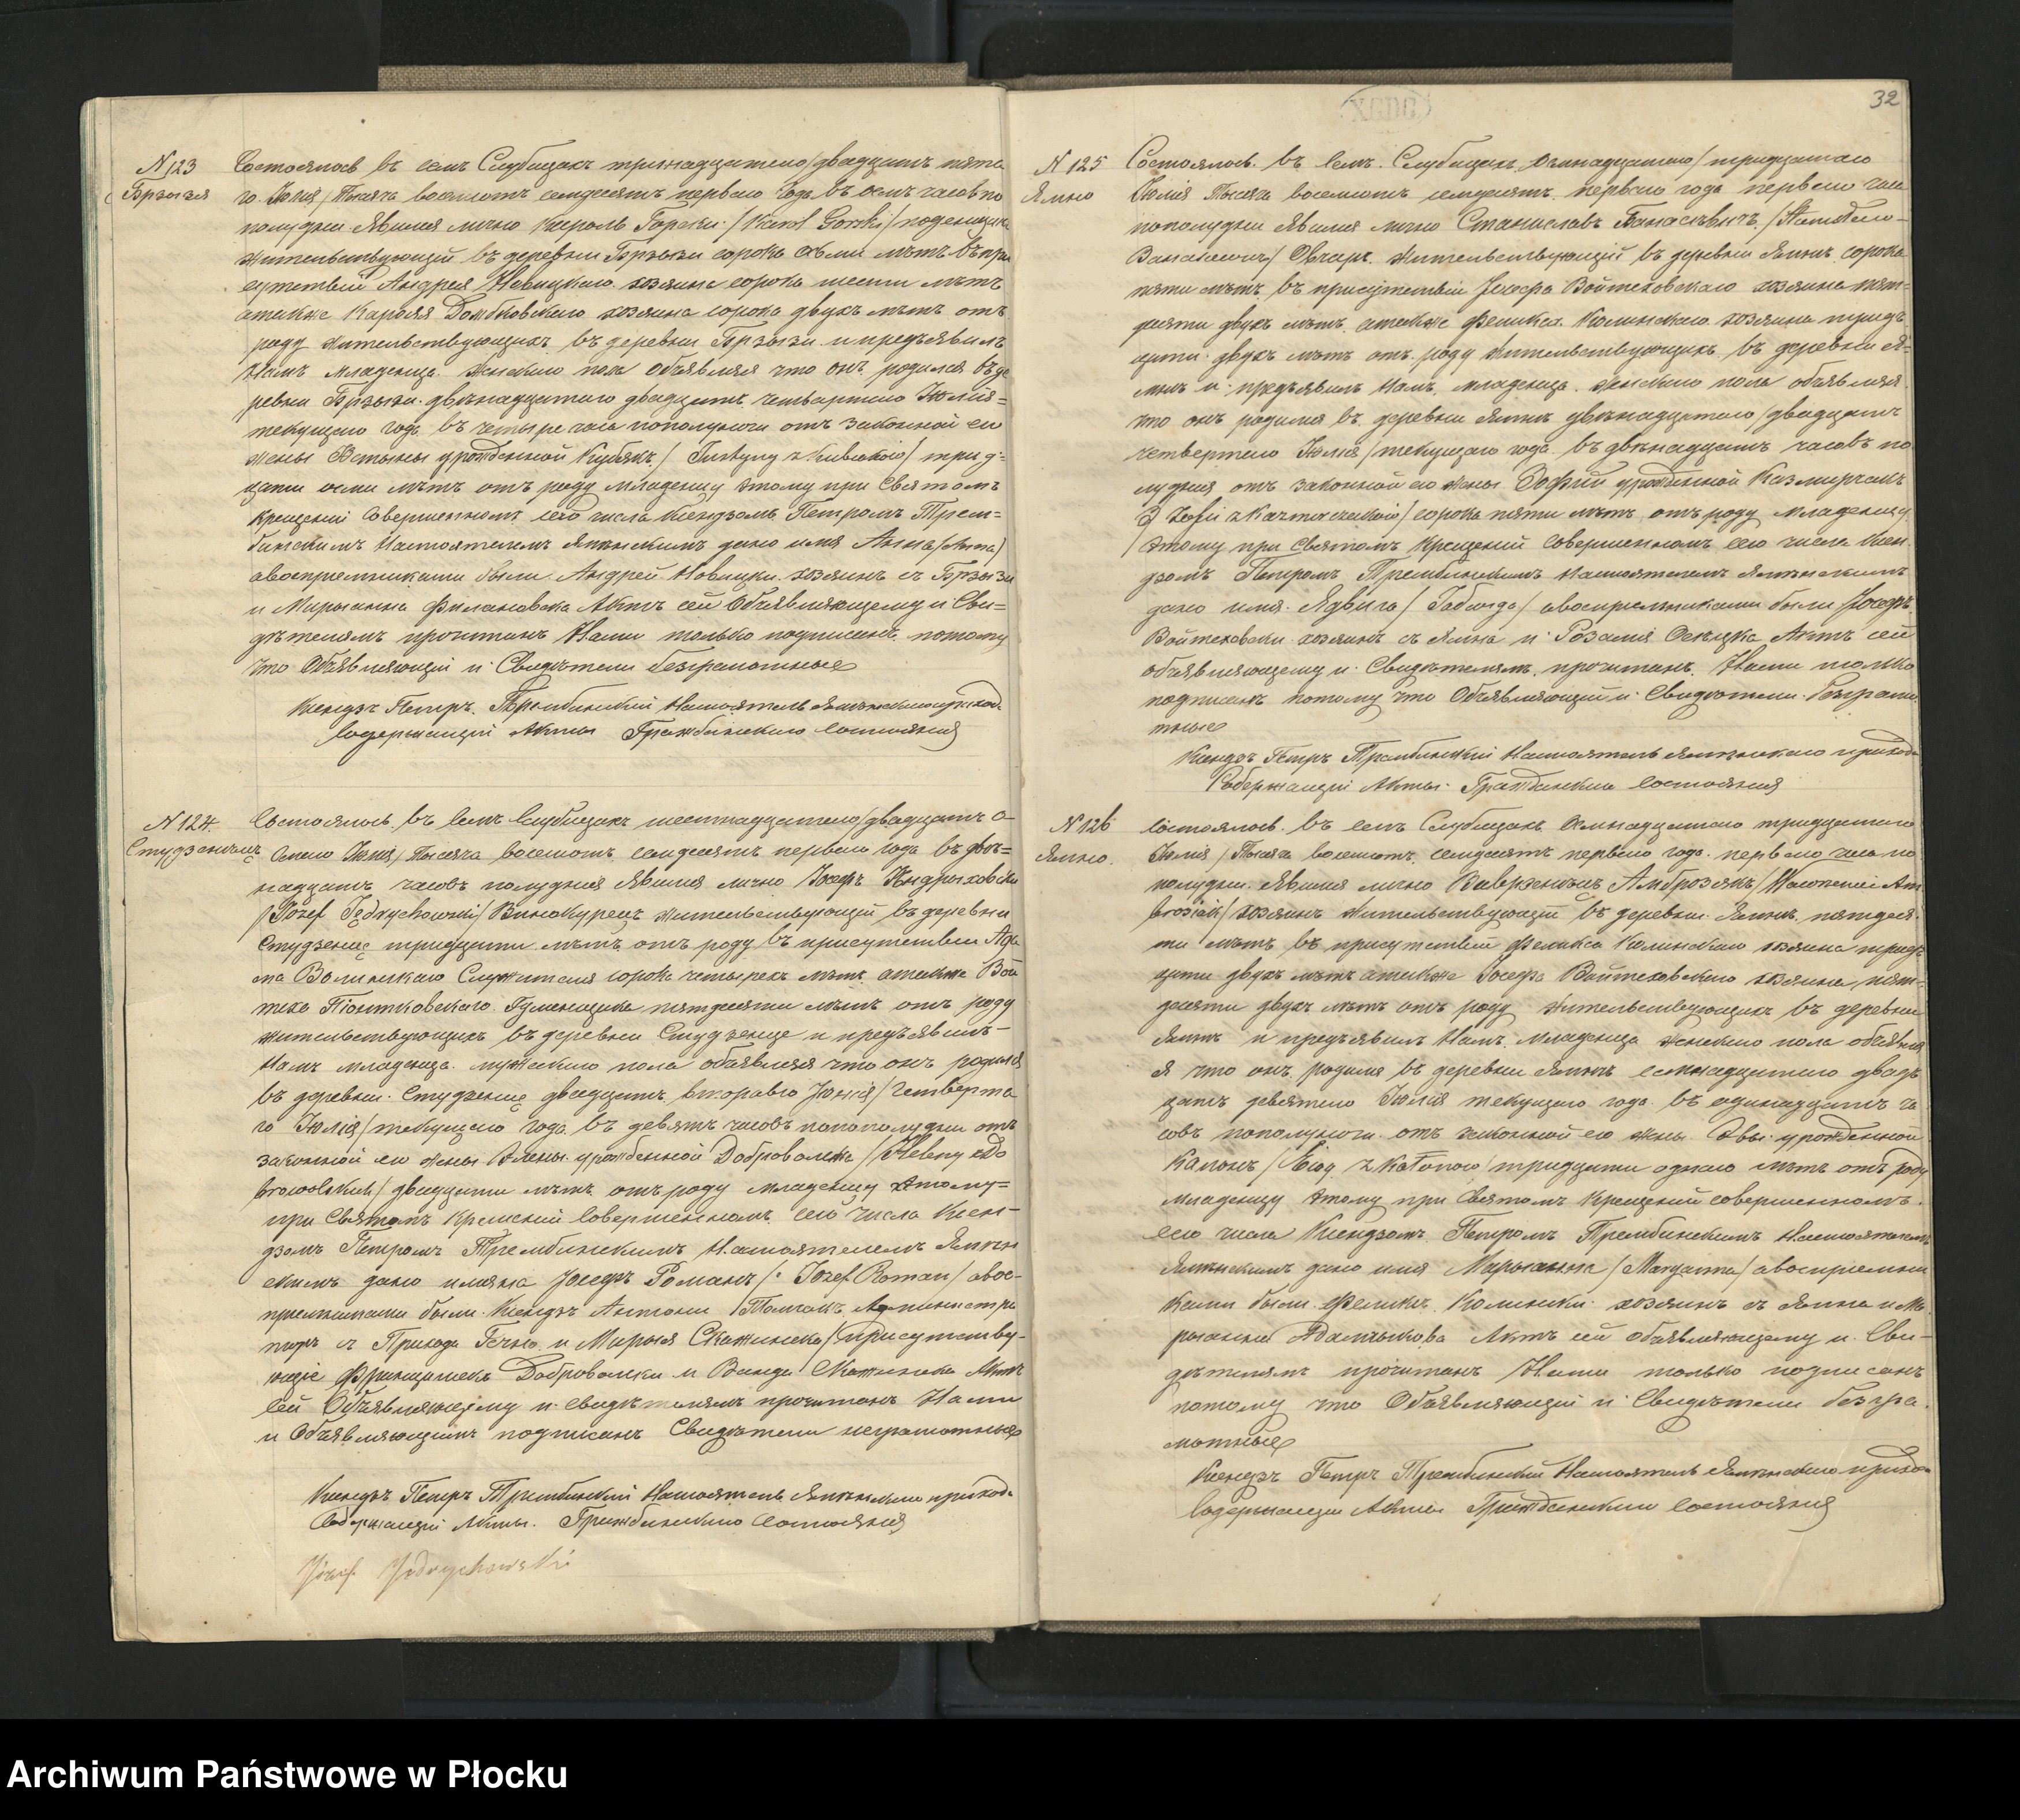 N 123
Брзызя
Состоялось въ селѣ Слубицахъ тринадцатаго/двадцать пята
го Іюля/Тысяча восемсотъ семдесятъ перваго года въ осмъ часовъ по
полудни Явился лично Кароль Горски /Karol Gorski/ поденщикъ
жительствующій въ деревни Брзызи сорока осьми лѣтъ въ при
сутствіи Андрея Новицкаго хозяина сорока шести лѣтъ
атакже Кароля Домбковскаго хозяина сорока двухъ лѣтъ отъ
роду жительствующихъ въ деревни Брзызи и предъявилъ
Намъ младенца женскаго пола Объявляя что онъ родился въ де
ревни Брзызи двѣнадцатаго двадцать четвертаго Іюлія=
текущаго года въ четыре часа пополуночи отъ законной его
жены урожденной Кубякъ / трид=
цати осми лѣтъ отъ роду младенцу этому при Святомъ
Крещеніи Совершенномъ сего числа Ксендзомъ Петромъ Трем=
бинскимъ Настоятелемъ Ямнскимъ дано имя Анна/Anna/
авоспріемниками были Андрей Новицки хозяинъ съ Брзызи
и Марыанна Филановска Актъ сей Объявляющему и Сви=
дѣтелямъ прочитанъ Нами только подписанъ потому
что Объявляющій и Свидѣтели безграмотные
Ксендзъ Петръ Трембинскій Настоятель Ямнскаго прихода
Содержащій Акты Гражданскаго Состоянія
N 124.
Студзенецъ
Состоялось въ селѣ Слубицахъ шестнадцатаго/двадцать о-
смаго Іюля/Тысяча восемсотъ семдесятъ перваго года въ двѣ=
надцать часовъ полудня Явился лично Іосефъ Ендрыховски
/Józef Jędrychowski/ Винокурецъ жительствующій въ деревни
Студзенце тридцати лѣтъ отъ роду въ присутствіи Ада
ма Волинскаго Служителя сорока четырехъ лѣтъ атакже Вой
теха Піонтковскаго Гуменщика пятдесяти лѣтъ отъ роду
жительствующихъ въ деревни Студзенце и предъявилъ-
Намъ младенца мужескаго пола объявляя что онъ родился
въ деревни Студзенце двадцать втораго Іюнія/четверта
го Іюлія/текущаго года въ девять часовъ попополудни отъ
законной его жены Элены урожденной Доброволска /Heleny z Do
browolskich/ двадцати лѣтъ отъ роду младенцу этому=
при Святомъ Крещеніи Совершенномъ сего числа Ксен-
дзомъ Петромъ Трембинскимъ Настоятелемъ Ямнн
скимъ дано имяна Іосефъ Романъ /: Józef Roman/ авос-
пріемниками были Ксендзъ Антони Администра
торъ съ Прихода и Марыя Скажинска/присутству-
ющіе Францишекъ Доброволски и Ванда Скажинска Актъ
сей Объявляющему и свидѣтелямъ прочитанъ Нами
и Объявляющимъ подписанъ Свидѣтели неграмотные
Ксендзъ Петръ Трембинскій Настоятель Ямнскаго прихода
Содержащій Акты Гражданскаго Состоянія
Józef Jędrychowski
32
N 125
Ямно
Состоялось въ селѣ Слубицахъ осмнадцатаго/тридцатаго
Іюлія Тысяча восемсотъ семдесятъ перваго года перваго часа
пополудни Явился лично Станиславъ Банасѣвичъ /Stanisław-
Banasiewicz/ Овчаръ жительствующій въ деревни Ямнѣ сорока
пяти лѣтъ въ присутствіи Іосефа Войтеховскаго хозяина пят=
десяти двухъ лѣтъ атакже Феликса Колинскаго хозяина трид
цати двухъ лѣтъ отъ роду жительствующихъ въ деревни Я=
мнѣ и предъявилъ Намъ младенца женскаго пола объявляя
что онъ родился въ деревни Ямнѣ двѣнадцатаго/двадцать
четвертаго Іюлія/текущаго года въ двѣнадцать часовъ по
лудня отъ законной его жены Зофіи урожденной Казмирчакъ
/Zofii z / сорока пяти лѣтъ отъ роду младенцу
этому при Святомъ Крещеніи Совершенномъ сего числа Ксен
дзомъ Петромъ Трембинскимъ Настоятелемъ Ямнскимъ
дано имя Ядвига/ / авоспріемниками были Іосефъ
Войтеховски хозяинъ съ Ямна и Розалія Актъ сей
объявляющему и Свидѣтелямъ прочитанъ Нами только
подписанъ потому что Объявляющій и Свидѣтели безграмо
тные
Ксендзъ Петръ Трембинскій Настоятель Ямнскаго прихода
Содержащій Акты Гражданскаго Состоянія
N 126
Ямно.
Состоялось въ селѣ Слубицахъ Осмнадцатаго тридцатаго
Іюлія/Тысяча восемсотъ семдесятъ перваго года перваго часа по
полудни Явился лично Вавженецъ Амброзякъ/Wawrzeniec Am
brosiak/ хозяинъ жительствующій въ деревни Ямнѣ пятдеся
ти лѣтъ въ присутствіи Феликса Колинскаго хозяина трид
цати двухъ лѣтъ атакже Іосефа Войтеховскаго хозяина пят-
десяти двухъ лѣтъ отъ роду жительствующихъ въ деревни
Ямнѣ и предъявилъ Намъ младенца женскаго пола объявля
я что онъ родился въ деревни Ямнѣ семнадцатаго двад
цать девятаго Іюлія текущаго года въ одинадцать ча
совъ пополуночи отъ законной его жены Эвы урожденной
Калонъ /Ewy z / тридцати одного лѣтъ отъ роду
младенцу этому при Святомъ Крещеніи совершенномъ
сего числа Ксендзомъ Петромъ Трембинскимъ Настоятелемъ
Ямнскимъ дано имя Марыанна /Maryanna/ авоспріемни
ками были Феликсъ Колински хозяинъ съ Ямна и Ма
рыанна Актъ сей объявляющему и Сви-
дѣтелямъ прочитанъ Нами только подписанъ
потому что Объявляющій и Свидѣтели безгра
мотные
Ксендзъ Петръ Трембинскій Настоятель Ямнскаго прихода
Содержащій Акты Гражданскаго Состоянія
Archiwum Państwowe w Płocku